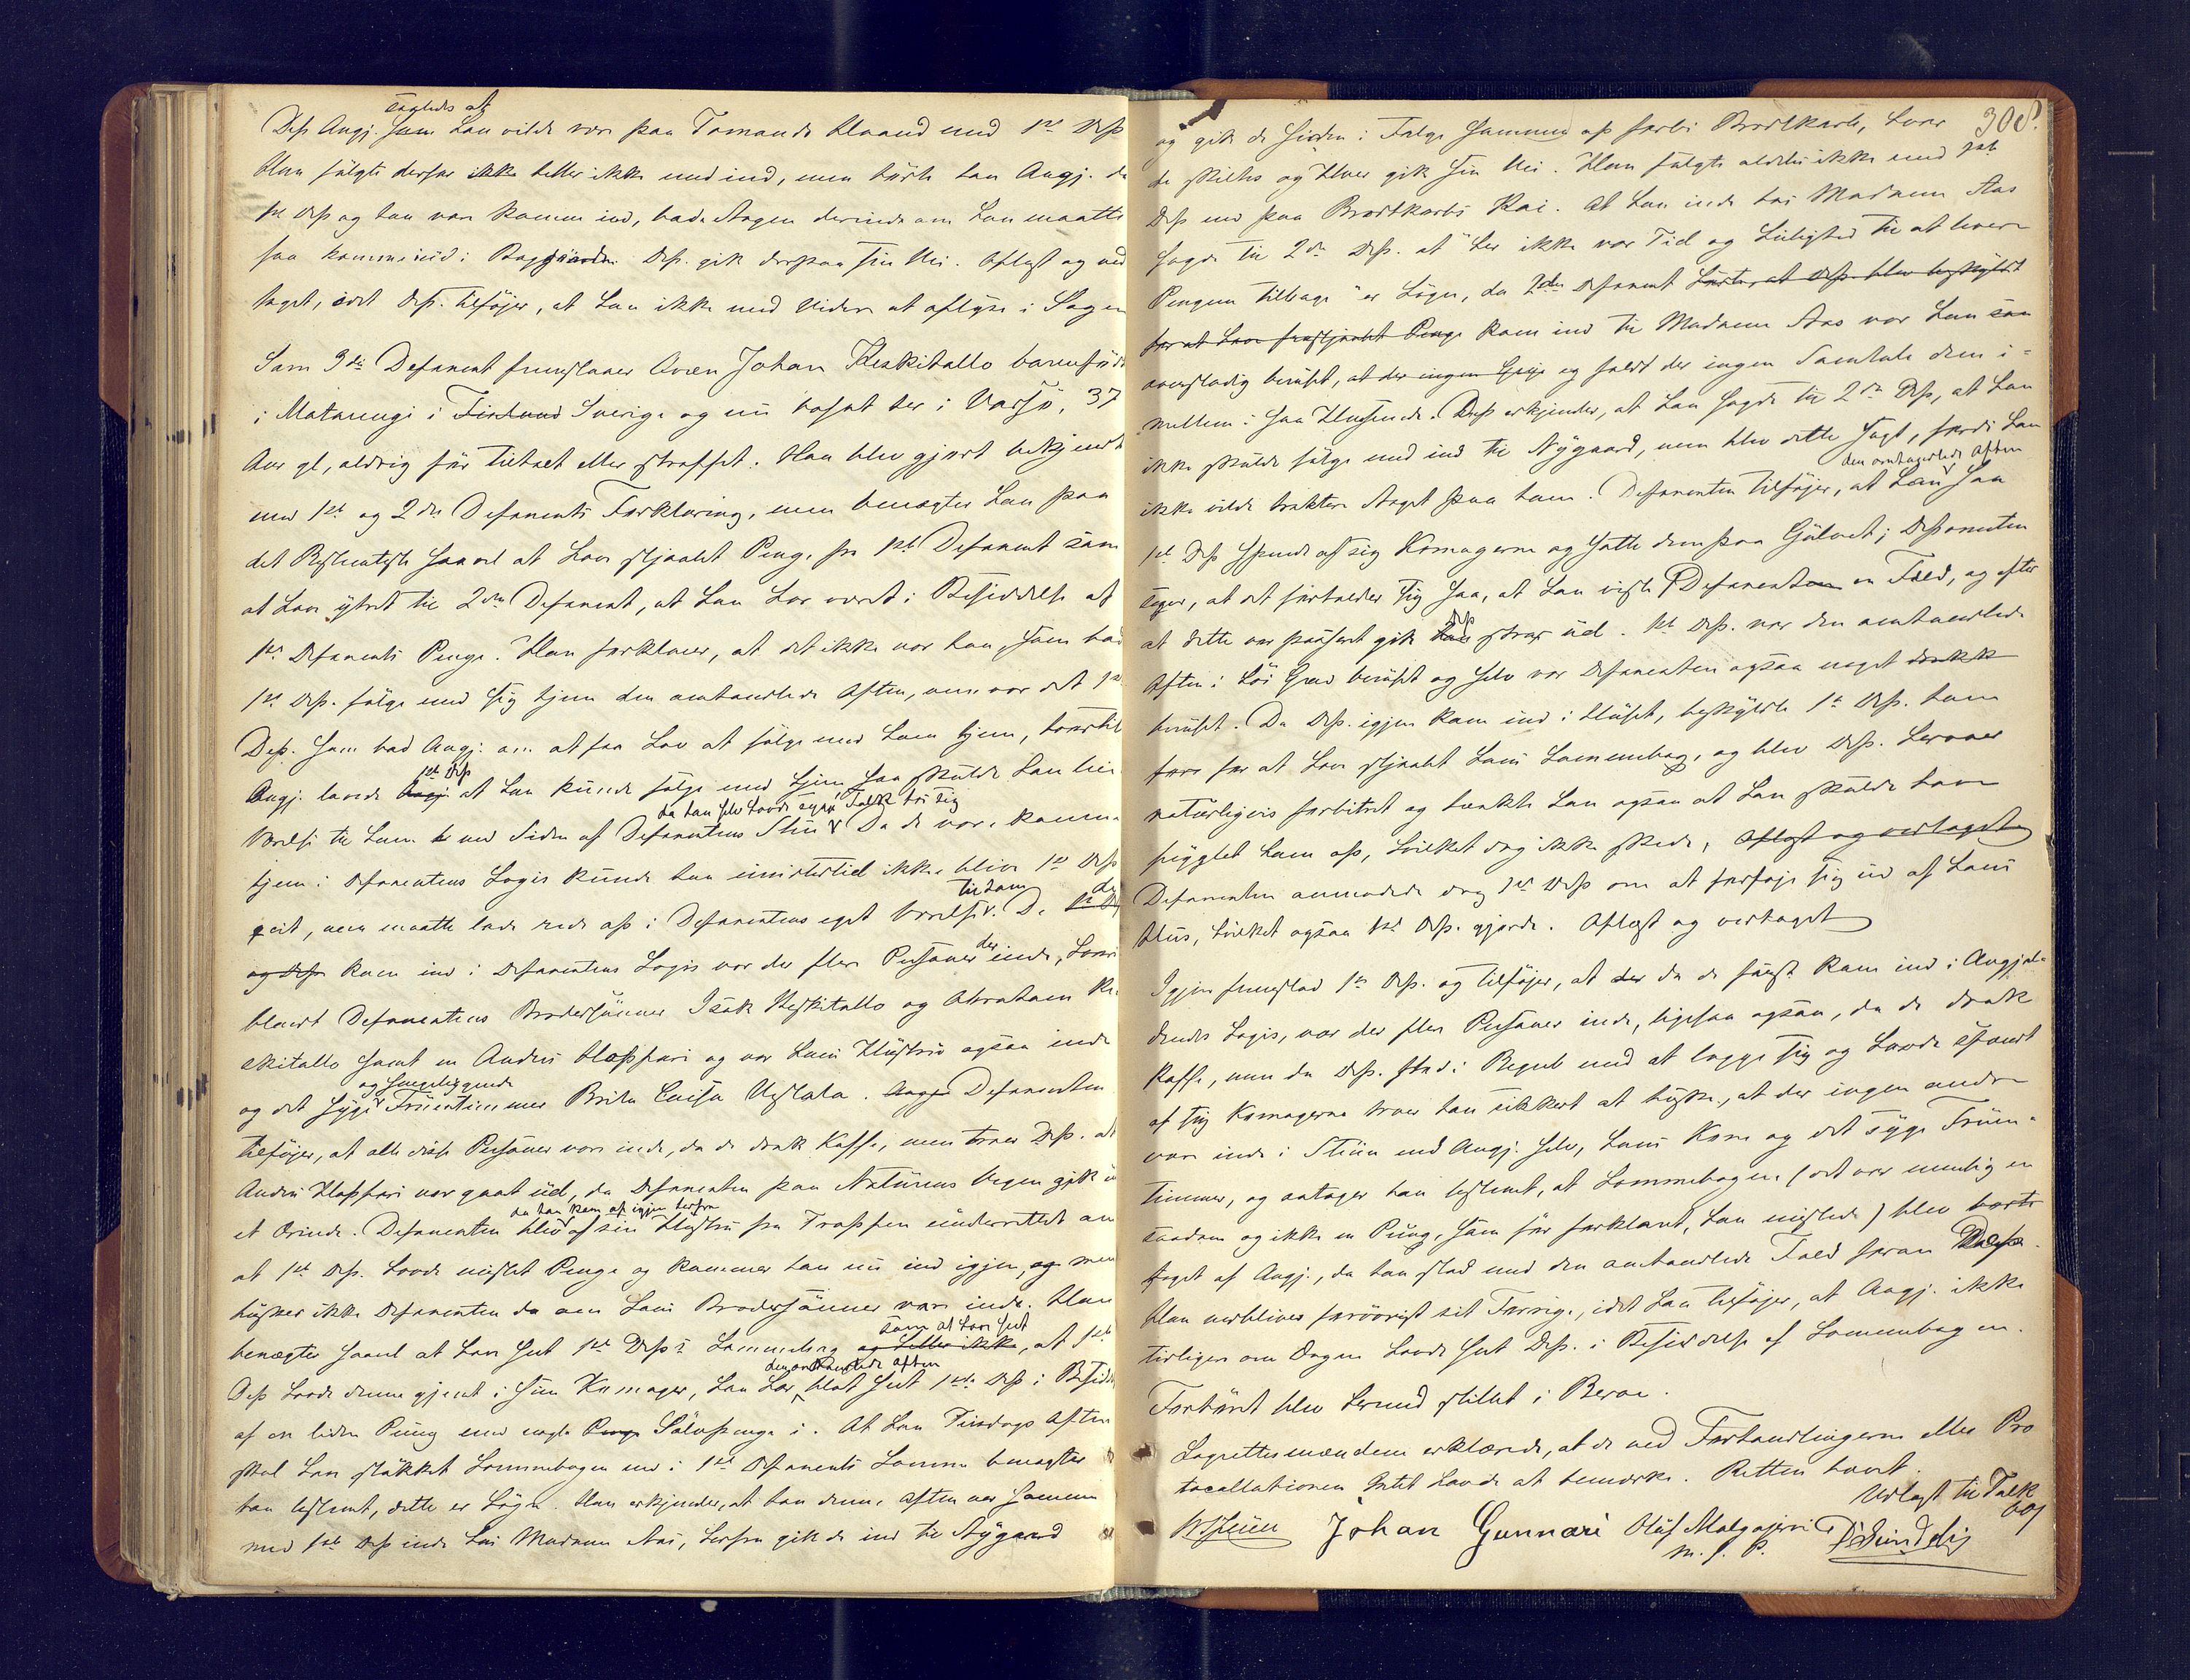 saaledes at
Dep Angj. som han vilde være paa Tomands Haand med 1ste Dep
Han fulgte derfor ikke heller ikke med ind, men hørte han Angj. da
1ste Dep og han var kommen ind, bade Angen derinde om han maatte
faa komme ind i Baggaarden. Dep. gik derpaa sin Vei. Oplæst og ved
taget, idet Dep. tilføjer, at han ikke med Viden at oplyse i Sagen
Som 3die Deponent fremstaaer Arven Johan Keskitallo barnefødt
i Matarengi i Finland Sverige og nu bosat her i Vadsø, 37
Aar gl, aldrig før tiltalt eller straffet. Han blev gjort bekjendt
med 1ste og 2den Deponents Forklaring, men benægter han paa
det Bestemteste saavel at have stjaalet Penge fra 1ste Deponent som
at have ytret til 2den Deponent, at han har været i Besiddelse af
1ste Deponents Penge. Han forklarer, at det ikke var han, som bad
1ste Dep. følge med sig hjem den omhandlede Aften, men var det 1ste
Dep. som bad Angj. om at faa Lov at følge med ham hjem, hvortil
1ste Dep
Angj. lovede Angj. at han kunde følge med hjem, saa skulde han leie
da han selv havde syge Folk hos sig
Værelse til ham ved Siden af Deponentens Stue Da de vare komne
hjem i Deponentens Logis kunde han imidlertid ikke blive 1ste Dep
til ham
qvit, men maatte lade rede op i Deponentens eget Værelse. Da 1ste Dep
og Dep kom ind i Deponentens Logis var der flere Personer der inde, hvori-
blandt Deponentens Brodersønner Isak Keskitallo og Abraham Ke-
skitallo samt en Anders Happari og var hans Hustru også inde
og sengeliggende
og det syge Fruentimmer Brita Caisa Uestala. Angj. Deponenten
tilføjer, at alle disse Personer vare inde, da de drak Kaffe, men troer Dep. at
Anders Happari var gaaet ud, da Deponenten paa Naturens Vegne gik ud
da han kom op igjen herfra
et Ærinde. Deponenten blev af sin Hustru fra Trappen underrettet om
at 1ste Dep. havde mistet Penge og kommer han nu ind igjen, og men
husker ikke Deponenten da om hans Brodersønner vare inde. Han
som at have seet
benægter saavel at have seet 1ste Deps Lommebog og heller ikke, at 1ste
den omhandlede Aften
Dep havde denne gjemt i sine Komager, han har blot seet 1ste Dep i Besidd
af en liden Pung med nogle Penge Sølvpenge i. At han Tirsdags Aften
skal have stukket Lommebogen ned i 1ste Deponents Lomme benægter
han bestemt, dette er Løgn. Han erkjender, at han denne Aften var sammen
med 1ste Dep inde hos Madame Aas, herfra gik de ind til Nygaard
308.
og gik de siden i Følge sammen op forbi Brodtkorb, hvor
de skiltes og Hver gik sin Vei. Han fulgte aldeles ikke med 1ste
Dep ned paa Brodtkorbs Kai. At han inde hos Madame Aas
sagde til 2den Dep. at "her ikke var Tid og Leilighed til at levere
Pengene tilbage" er Løgn, da 2den Deponent hørte, at Dep. blev beskyldt
for at have frastjaalet Penge kom ind til Madame Aas var han saa
overstadig beruset, at der ingen Greje og faldt der ingen Samtale dem i-
mellem i saa Henseende. Dep erkjender, at han sagde til 2den Dep, at han
ikke skulde følge med ind til Nygaard, men blev dette sagt, fordi han
den omhandlede Aften
ikke vilde traktere Noget paa ham. Deponenten tilføjer, at han saa
1ste Dep spende af sig Komagerne og satte dem paa Gulvet; Deponenten
siger, at det forholder sig saa, at han viste Deponenten en Fæld, og efter
Dep
at dette var passeret gik han strax ud. 1ste Dep. var den omhandlede
Aften i høi Grad beruset og selv var Deponenten ogsaa noget drukk
beruset. Da Dep. igjen kom ind i Huset, beskyldte 1ste Dep. ham
for at have stjaalet hans Lommebog, og blev Dep. herover
naturligvis forbitret og tænkte han ogsaa at han skulde have
pryglet ham op, hvilket dog ikke skede, Oplæst og vedtaget
Deponenten anmodede dog 1ste Dep om at forføje sig ud af hans
Hus, hvilket ogsaa 1ste Dep. gjorde. Oplæst og vedtaget
Igjen fremstod 1ste Dep. og tilføjer, at der da de først kom ind i Angjæl-
dendes Logis, var der flere Personer inde, ligesaa ogsaa, da de drak
Kaffe, men da Dep. stod i Begreb med at lægge sig og havde spændt
af sig Komagerne troer han sikkert at huske, at der ingen andre
var inde i Stuen end Angj. selv, hans Kone og det syge Fruen-
timmer, og antager han bestemt, at Lommebogen (det var nemlig en
saadan og ikke en Pung, som før forklaret, han mistede) blev borte
taget af Angj., da han stod med den omhandlede Fæld foran
Han vedbliver forøvrigt sit Forrige, idet han tilføjer, at Angj. ikke
tidligere om Dagen havde seet Dep. i Besiddelse af Lommebogen.
Forhøret blev hermed stillet i Beroe.
Lagrettesmændene erklærede, at de ved Forhandlingerne eller Pro
tocollationen Intet havde at bemærke. Retten hævet.
Udlagt til Tolk
Johan Gunnari Oluf Malgajervi
m. f. P.